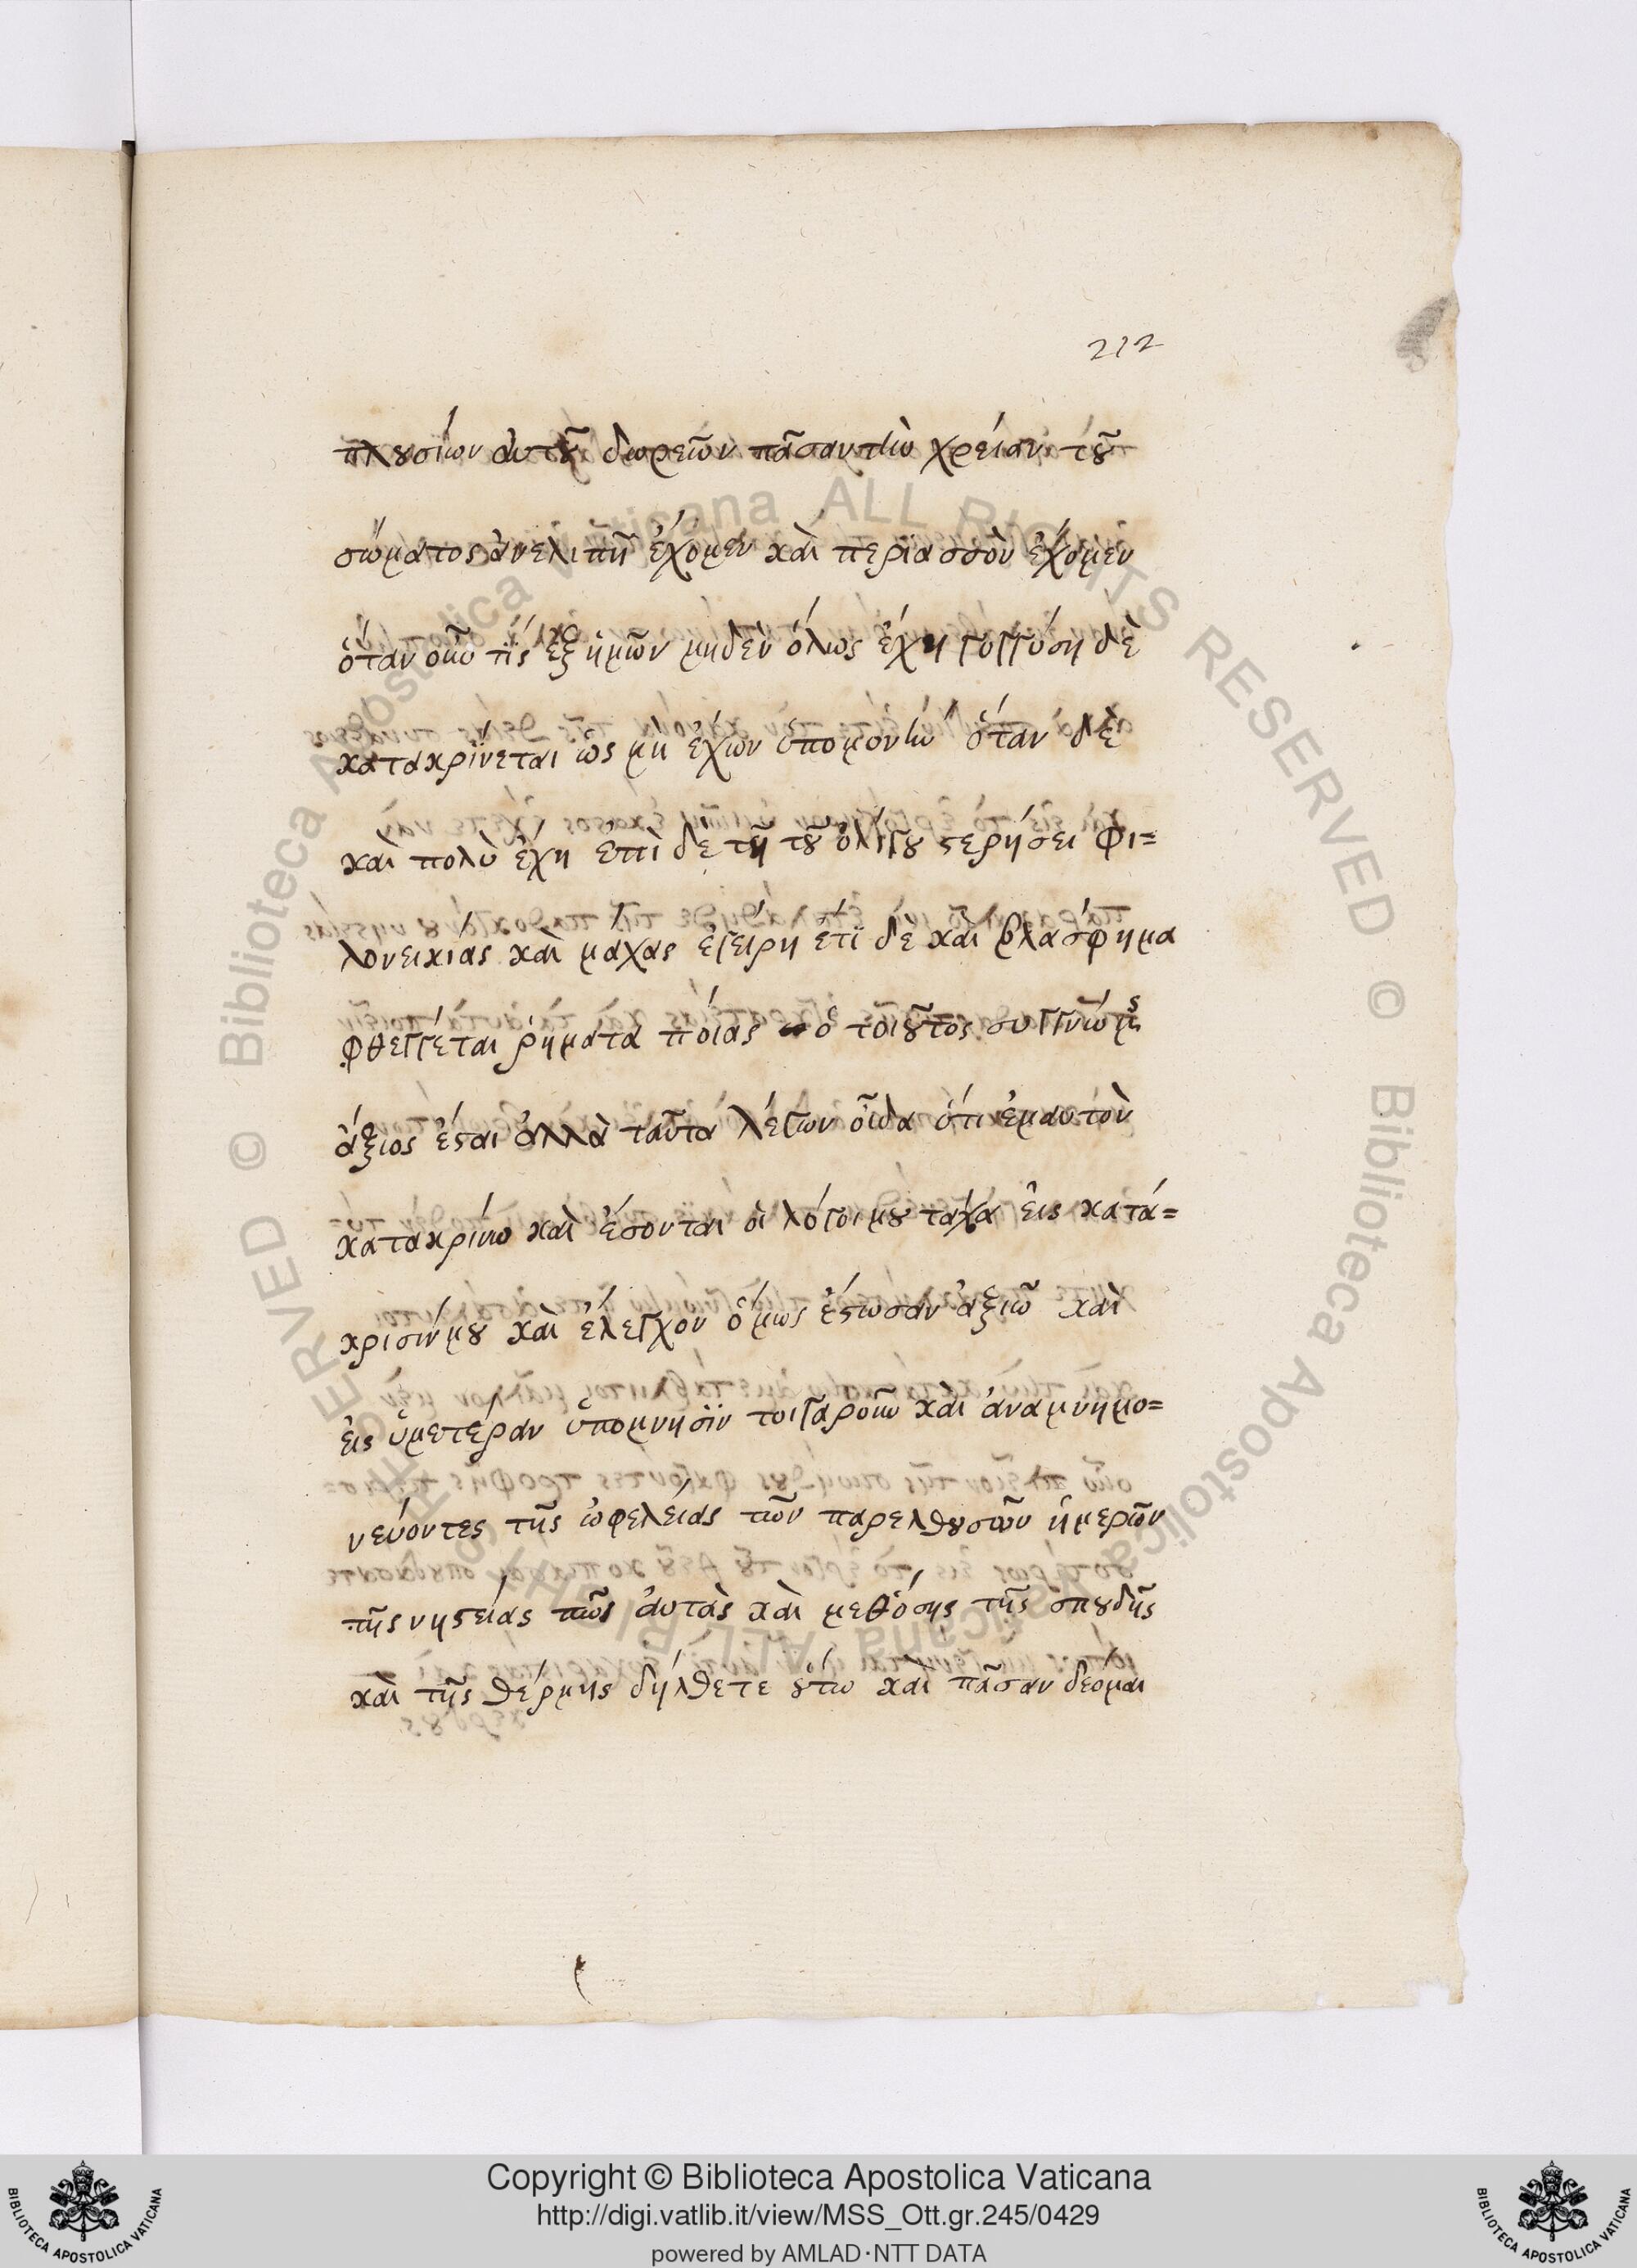 212
πλουσίων αὐτοῦ δωρεῶν πᾶσαν τὴν χρείαν τοῦ
σώματος ἀνελιπῆ ἔχομεν καὶ περϊασσὸν ἔχομεν
ὅταν οὖν τίς ἐξ ἡμῶν μηδὲν ὅλως ἔχη γογγύση δὲ
κατακρίνεται ὡς μὴ ἔχων ὑπομονὴν ὅταν δὲ
καὶ πολὺ ἔχη ἐπὶ δε τῆ τοῦ ὀλίγου στερήσει φι=
λονεικίας καὶ μάχας ἐγείρη ἔτι δὲ καὶ βλάσφημα
φθέγγεται ῥήματα ποίας ὁ τοιοῦτος συγγνώμης
ἄξιος ἔσται ἀλλὰ ταῦτα λέγων οἶδα ὅτι ἐμαυτὸν
κατακρίνω καὶ ἔσονται οἱ λόγοι μου τάχα εἰς κατά=
κρισίν μου καὶ ἔλεγχον ὅμως ἔστωσαν ἀξιῶ καὶ
εἰς ὑμετέραν ὑπόμνησϊν τοιγαροῦν καὶ ἀναμνημο=
νεύοντες τῆς ὠφελείας τῶν παρελθουσῶν ἡμερῶν
τῆς νηστείας πῶς αὐτὰς καὶ μεθόσης τῆς σπουδῆς
καὶ τῆς θέρμης διήλθετε οὕτω καὶ πᾶσαν δέομαι
© Biblioteca Apostolica Vaticana ALL RIGHTS RESERVED © Biblioteca Apostolica Vaticana ALL RIGHTS RESERVED
BIBLIOTECA APOSTOLICA VATICANA
Copyright © Biblioteca Apostolica Vaticana
http://digi.vatlib.it/view/MSS_Ott.gr.245/0429
powered by AMLAD·NTT DATA
BIBLIOTECA APOSTOLICA VATICANA